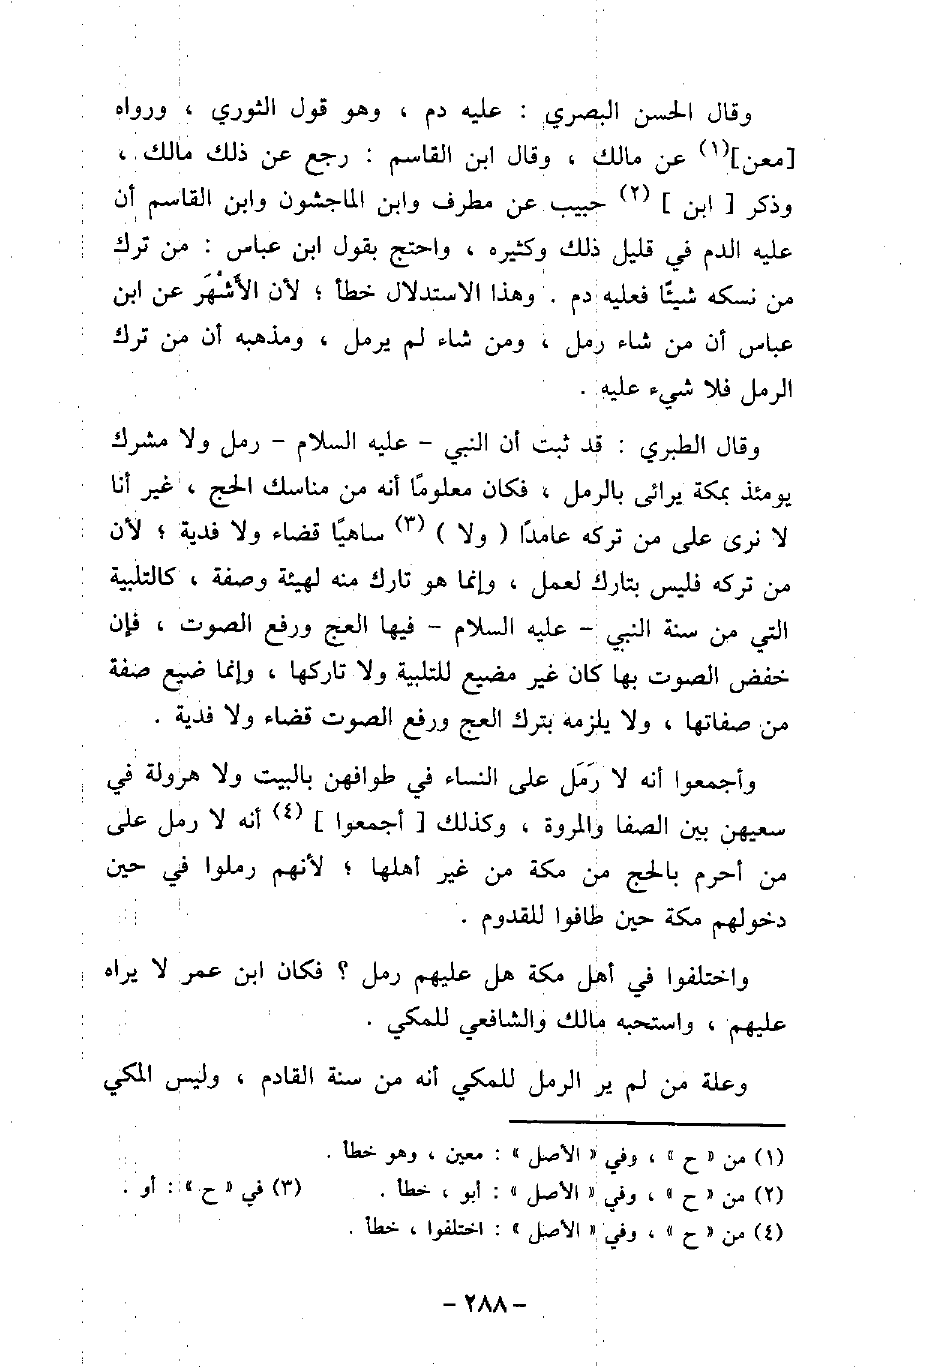 وقال الحسن البصري : عليه دم ، وهو قول الثوري ، ورواه
[معن](١) عن مالك ، وقال ابن القاسم : رجع عن ذلك مالك ،
وذكر [ ابن ] (٢) حبيب عن مطرف وابن الماجشون وابن القاسم أن
عليه الدم في قليل ذلك وكثيره ، واحتج بقول ابن عباس : من ترك
من نسكه شيئًا فعليه دم . وهذا الاستدلال خطأ ؛ لأن الأَشْهَر عن ابن
عباس أن من شاء رمل ، ومن شاء لم يرمل ، ومذهبه أن من ترك
الرمل فلا شيء عليه .
وقال الطبري : قد ثبت أن النبي – عليه السلام – رمل ولا مشرك
يومئذ بمكة يرائى بالرمل ، فكان معلومًا أنه من مناسك الحج ، غير أنا
لا نرى على من تركه عامدًا ( ولا ) (٣) ساهيًا قضاء ولا فدية ؛ لأن
من تركه فليس بتارك لعمل ، وإنما هو تارك منه لهيئة وصفة ، كالتلبية
التي من سنة النبي – عليه السلام – فيها العج ورفع الصوت ، فإن
خفض الصوت بها كان غير مضيع للتلبية ولا تاركها ، وإنما ضيع صفة
من صفاتها ، ولا يلزمه بترك العج ورفع الصوت قضاء ولا فدية .
وأجمعوا أنه لا رَمَل على النساء في طوافهن بالبيت ولا هرولة في
سعيهن بين الصفا والمروة ، وكذلك [ أجمعوا ] (٤) أنه لا رمل على
من أحرم بالحج من مكة من غير أهلها ؛ لأنهم رملوا في حين
دخولهم مكة حين طافوا للقدوم .
واختلفوا في أهل مكة هل عليهم رمل ؟ فكان ابن عمر لا يراه
عليهم ، واستحبه مالك والشافعي للمكي .
وعلة من لم ير الرمل للمكي أنه من سنة القادم ، وليس المكي
(١) من « ح » ، وفي « الأصل » : معين ، وهو خطأ .
(٢) من « ح » ، وفي « الأصل » : أبو ، خطأ . (٣) في « ح » : أو .
(٤) من « ح » ، وفي « الأصل » : اختلفوا ، خطأ .
– ٢٨٨ –